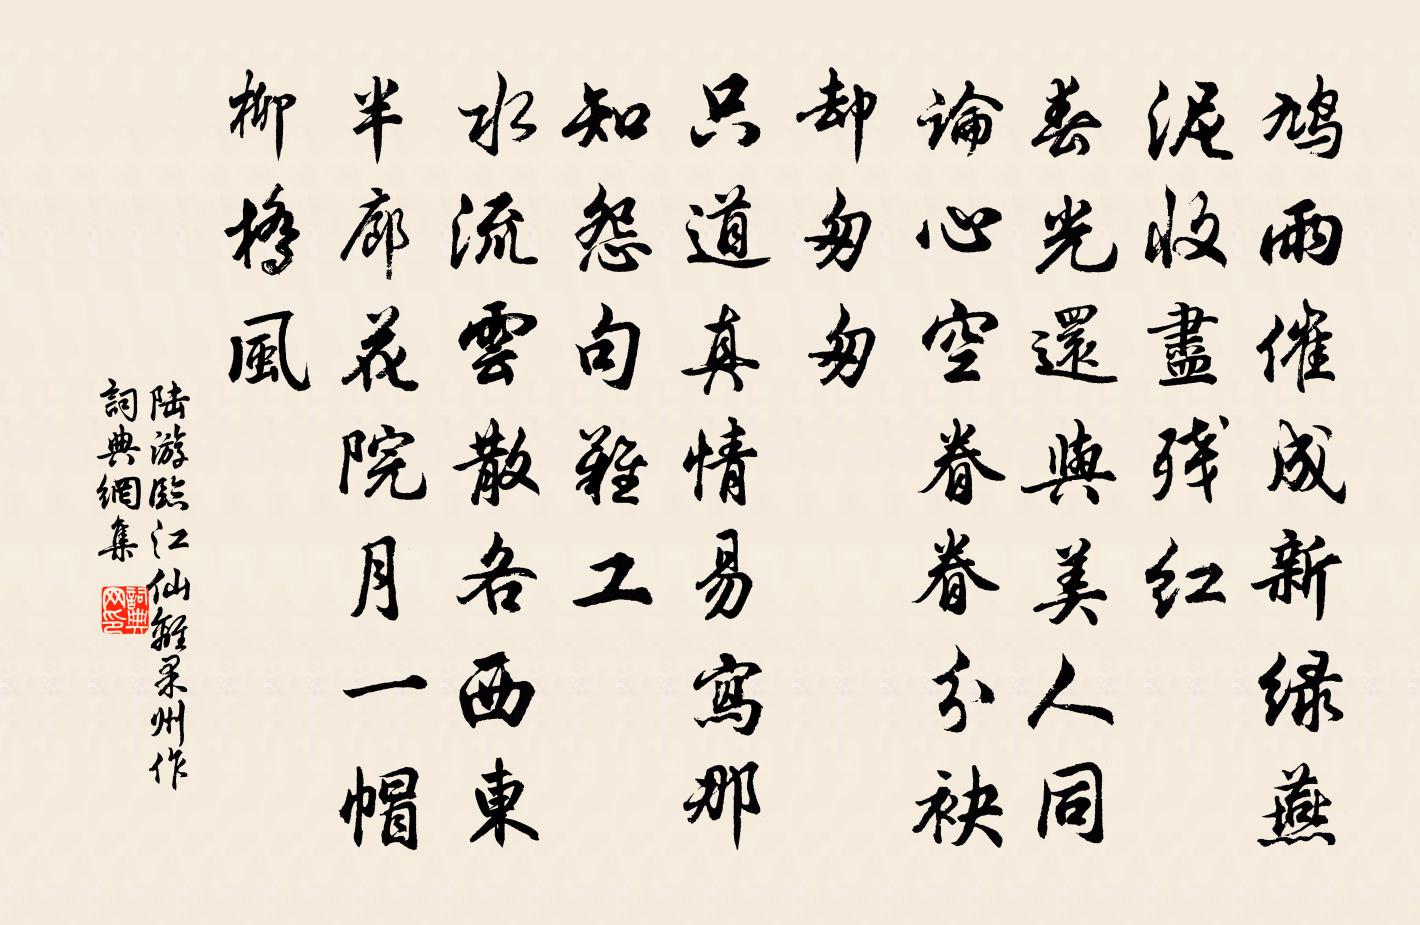 鳩雨催成新緑燕
泥收盡残红
春光還與美人同
論心空眷眷分袂
却匆匆
只道真情易寫那
知怨句難工
水流雲散各西東
半廊花院月一帽
柳橋風
陆游臨江仙離果州作
詞典網集
詞典网印